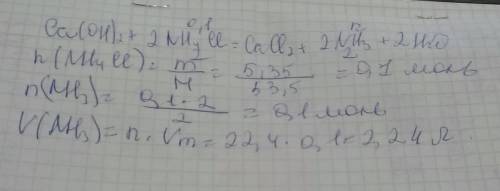 0,1 n
Ca(OH)₂ + 2NH₄Cl = CaCl₂ + 2NH₃ + 2H₂O
2 2
n(NH₄Cl) = m/M = 5,35/53,5 = 0,1 моль
n(NH₃) = 0,1 · 2/2 = 0,1 моль
V(NH₃) = n · Vm = 22,4 · 0,1 = 2,24 л.